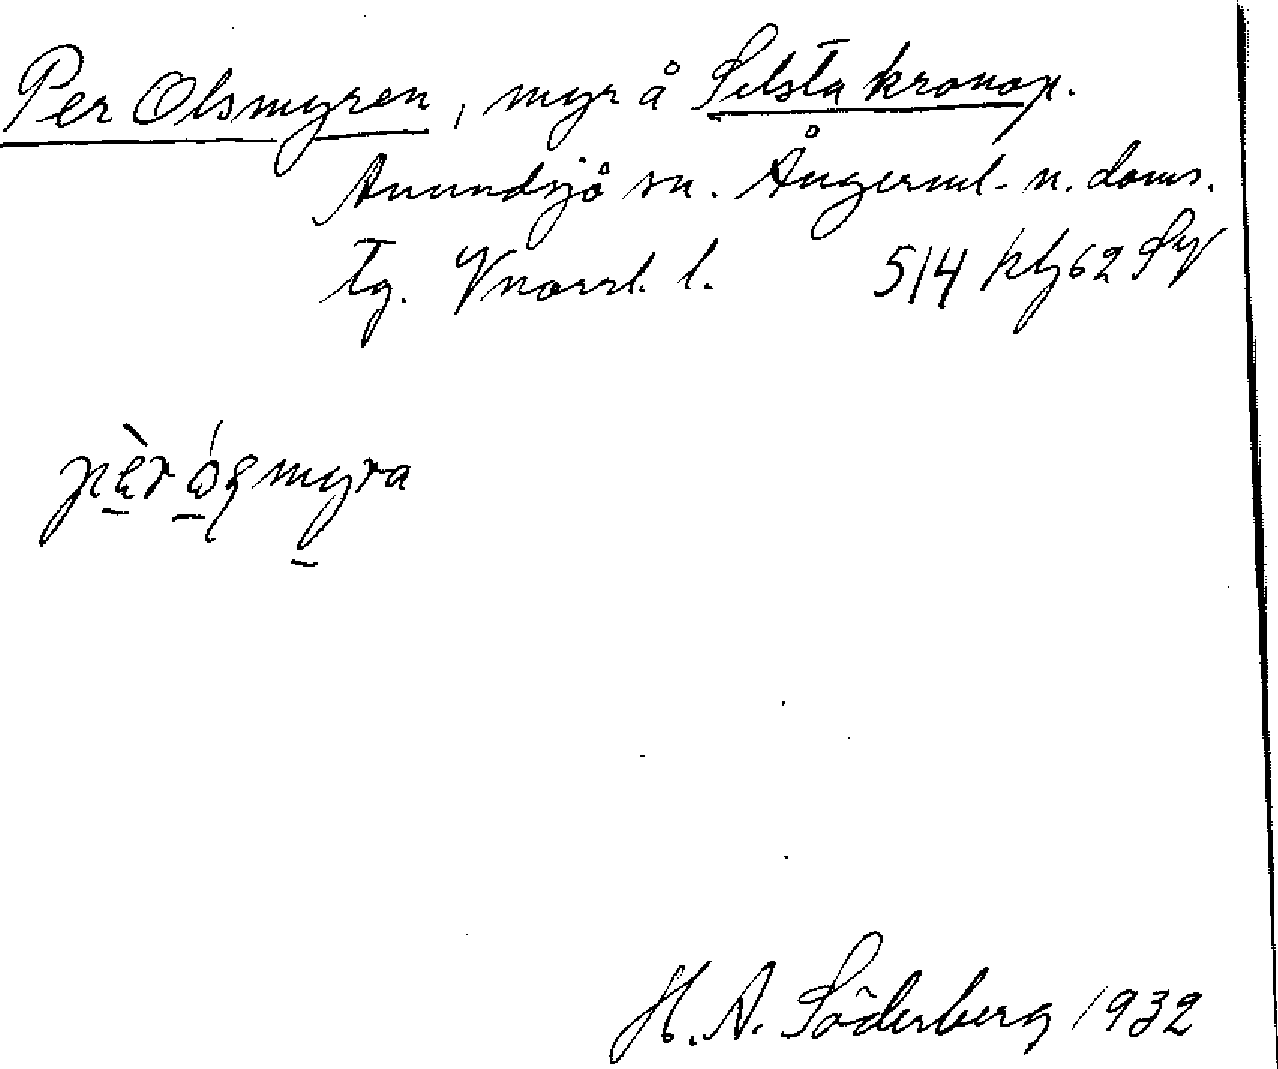 Per Olsmyren, myr å Selsta kronop.
Anundsjö sn. Ångerml. n. doms.
tg. Vnorrl. l. 514 klg 62 Sy
pèrósmyra
H. A. Söderberg 1932